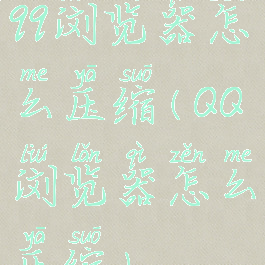 QQ浏览器怎
me yā suō
么压缩(QQ
liú lǎn qì zěn me
浏览器怎么
yā suō
压缩)